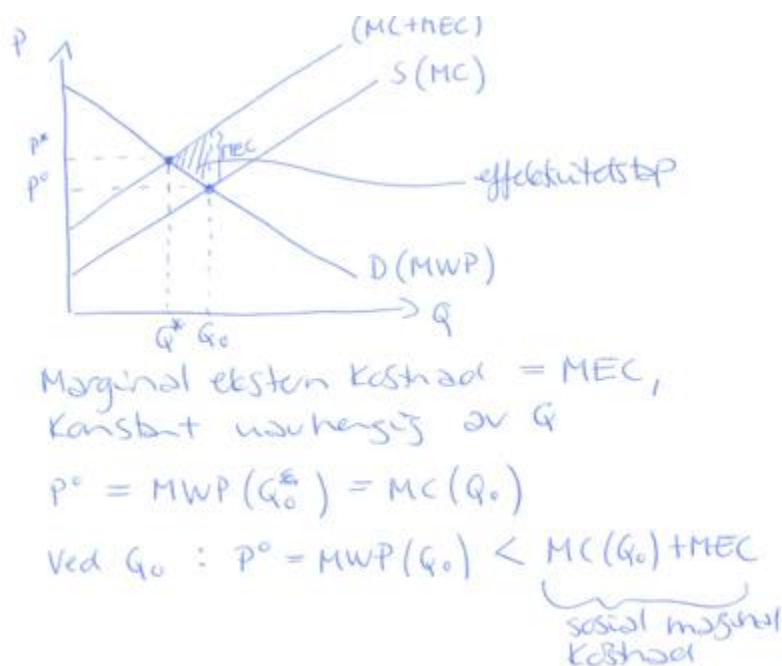 P
(MC+MEC)
S(MC)
P*
MEC
P°
effektivitetstap
D(MWP)
Q
Q* Q₀
Marginal ekstern kostnad = MEC,
Konstant uavhengig av Q
P° = MWP(Q₀) = MC(Q₀)
Ved Q₀ : P° = MWP(Q₀) < MC(Q₀)+MEC
sosial marginal
kostnad